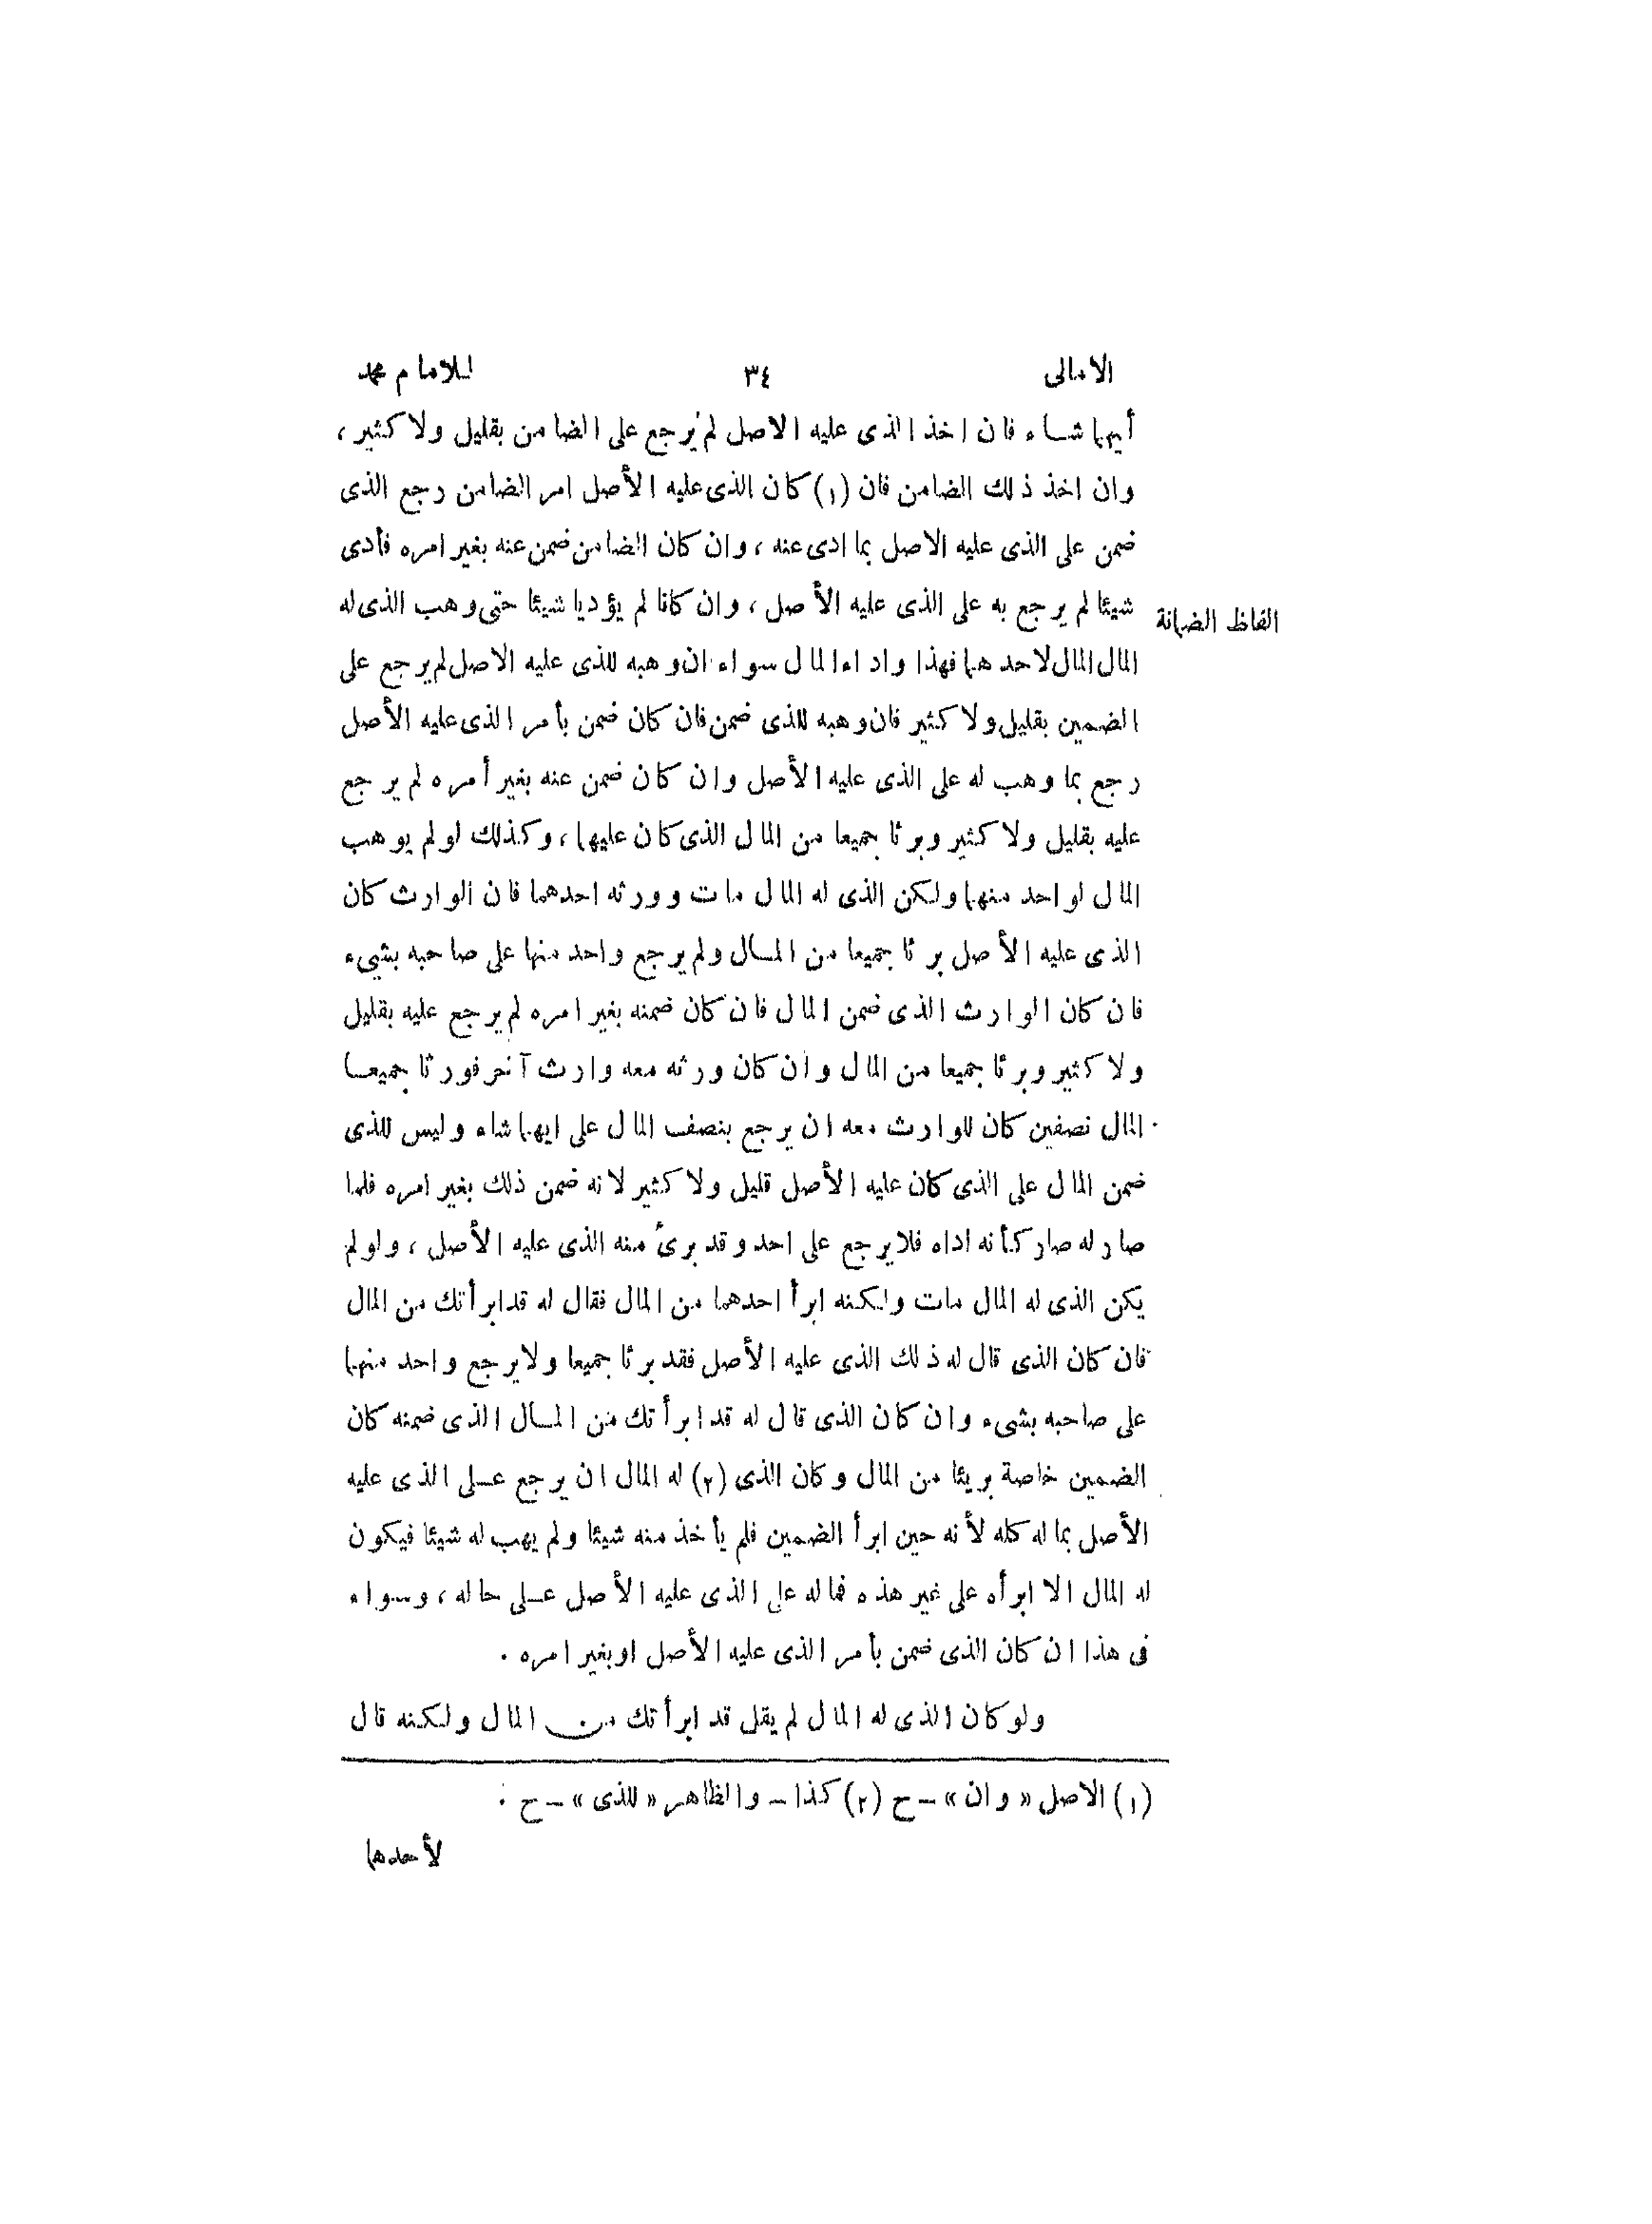 الامالى ٣٤ للامام محمد
أيهما شاء فان اخذ الذى عليه الاصل لم يرجع على الضامن بقليل ولا كثير ،
وان اخذ ذلك الضامن فان (١) كان الذى عليه الأصل امر الضامن رجع الذى
ضمن على الذى عليه الاصل بما ادى عنه ، وان كان الضامن ضمن عنه بغير امره فأدى
شيئا لم يرجع به على الذى عليه الأصل ، وان كانا لم يؤديا شيئا حتى وهب الذى له
الفاظ الضمانة
المال المال لاحدهما فهذا واداء المال سواء ان وهبه للذى عليه الاصل لم يرجع على
الضمين بقليل ولا كثير فان وهبه للذى ضمن فان كان ضمن بأمر الذى عليه الأصل
رجع بما وهب له على الذى عليه الأصل وان كان ضمن عنه بغير أمره لم يرجع
عليه بقليل ولا كثير وبرئا جميعا من المال الذى كان عليهما ، وكذلك لو لم يوهب
المال لواحد منهما ولكن الذى له المال مات وورثه احدهما فان الوارث كان
الذى عليه الأصل برئا جميعا من المال ولم يرجع واحد منهما على صاحبه بشيء
فان كان الوارث الذى ضمن المال فان كان ضمنه بغير امره لم يرجع عليه بقليل
ولا كثير وبرئا جميعا من المال وان كان ورثه معه وارث آخر فورثا جميعا
المال نصفين كان للوارث معه ان يرجع بنصف المال على ايهما شاء وليس للذى
ضمن المال على الذى كان عليه الأصل قليل ولا كثير لانه ضمن ذلك بغير امره فلما
صار له صار كأنه اداه فلا يرجع على احد وقد برئ منه الذى عليه الأصل ، ولو لم
يكن الذى له المال مات ولكنه ابرأ احدهما من المال فقال له قد ابرأتك من المال
فان كان الذى قال له ذلك الذى عليه الأصل فقد برئا جميعا ولا يرجع واحد منهما
على صاحبه بشىء وان كان الذى قال له قد ابرأتك من المال الذى ضمنه كان
الضمين خاصة بريئا من المال وكان الذى (٢) له المال ان يرجع على الذى عليه
الأصل بماله كله لأنه حين ابرأ الضمين فلم يأخذ منه شيئا ولم يهب له شيئا فيكون
له المال الا ابرأه على غير هذه فماله على الذى عليه الأصل على حاله ، وسواء
فى هذا ان كان الذى ضمن بأمر الذى عليه الأصل او بغير امره .
ولو كان الذى له المال لم يقل قد ابرأتك من المال ولكنه قال
(١) الاصل « وان » – ح (٢) كذا – والظاهر « للذى » – ح .
لأحدهما